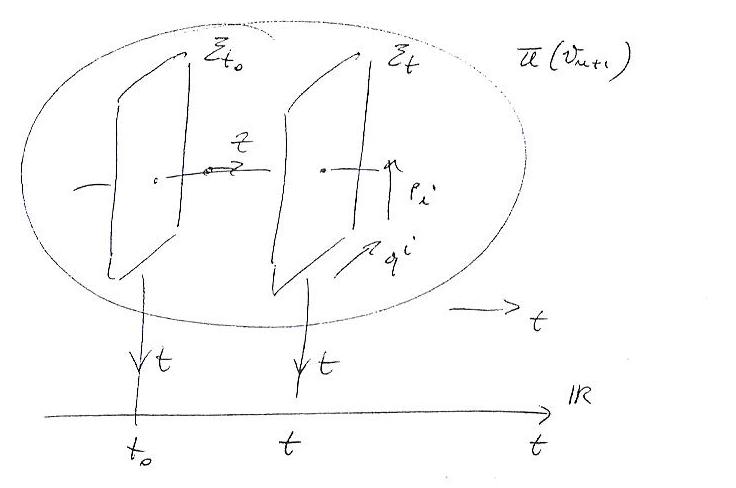 Σt₀ Σt π(Vₙ₊₁)
Z
pᵢ
qⁱ
t
t t
ℝ
t₀ t t